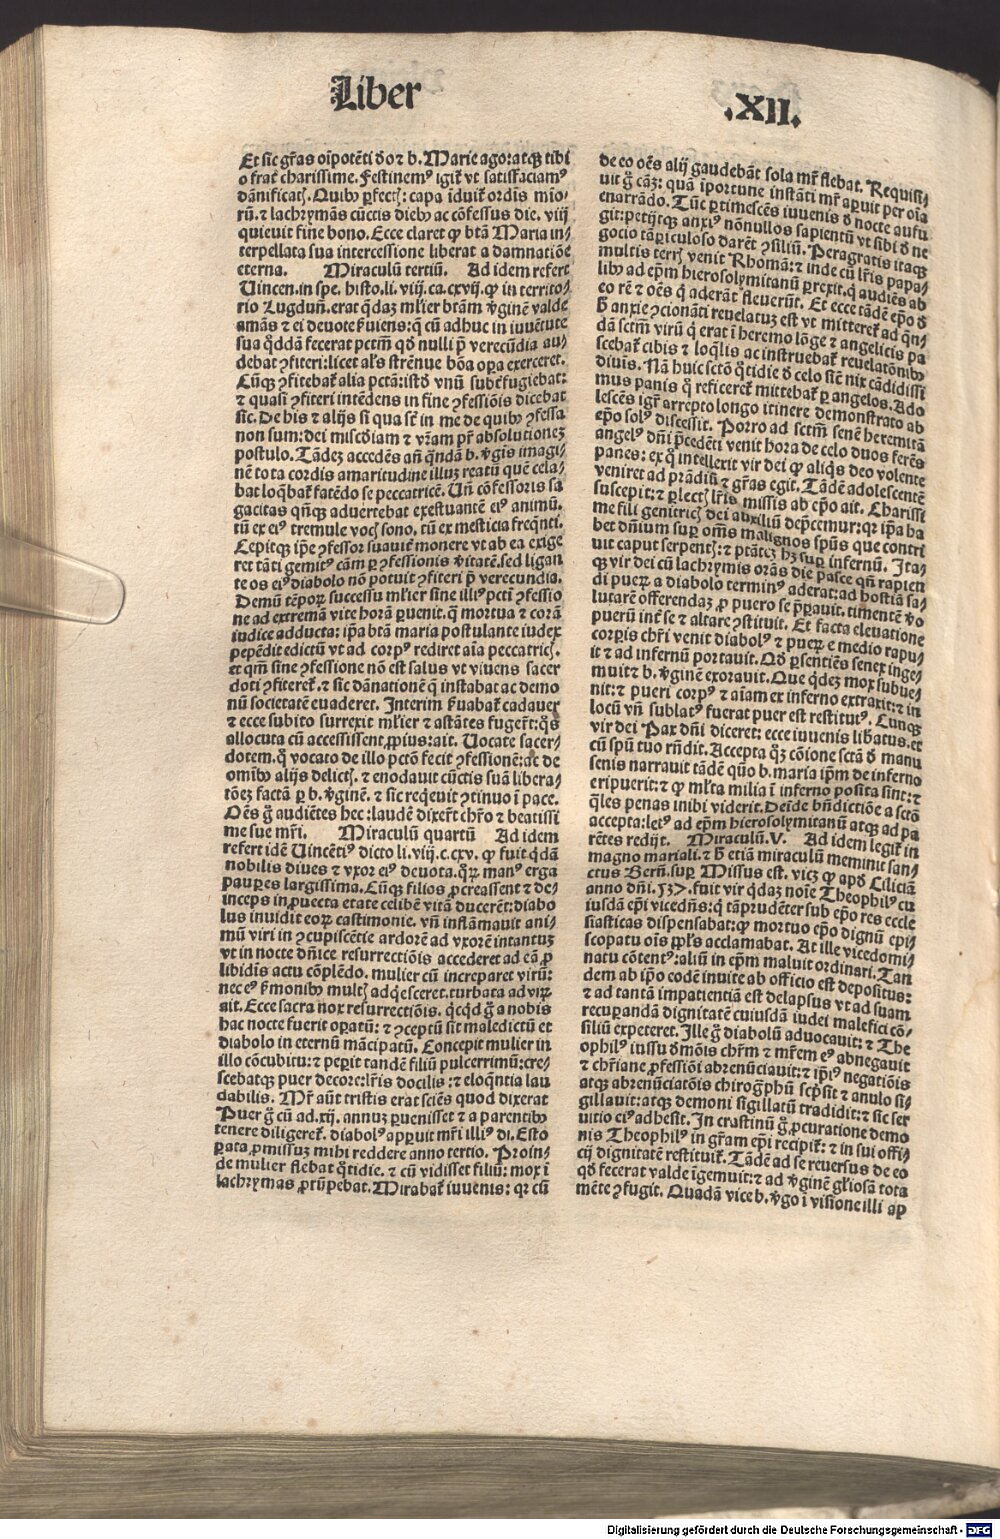 Liber .XII.
Et sic gr̄as oīpotēti deo ⁊ b. Marie ago: atqꝫ tibi
o frat̄ charissime. Festinemꝰ igit̄ vt satisfaciamꝰ
dānificatꝭ. Quibꝰ ꝑfectꝭ: capa īduit̄ ordīs mīo⸗
rū. ⁊ lachrymās cūctis diebꝰ ac cōfessus die. viij
quieuit fine bono. Ecce claret ꝙ btā Maria in⸗
terpellata sua intercessione liberat a damnatiōe
eterna. Miraculū tertiū. Ad idem refert
Uincen. in spe. histo. li. viij. ca. cxvij. ꝙ in territo⸗
rio Lugduñ. erat q̄daꝫ ml̓ier btām v̓ginē valde
amās ⁊ ei deuote ẜuiens: q̄ cū adhuc in iuuētute
sua q̄ddā fecerat pctm̄ qd̄ nulli p̄ verecūdia au⸗
debat ꝯfiteri: licet al̓s strēnue bōa oꝑa exerceret.
Cūqꝫ ꝯfitebat̄ alia pctā: istd̓ vnū subt̓fugiebat:
⁊ quasi ꝯfiteri intēdens in fine ꝯfessiōis dicebat
sic. De his ⁊ alijs si qua sr̄ in me de quibꝰ ꝯfessa
non sum: dei mīscd̓iam ⁊ vr̄am pr̄ absolutioneꝫ
postulo. Tādeꝫ accedēs añ q̄ndā b. v̓gīs imagi⸗
nē tota cordis amaritudine illuꝫ reatū quē cela⸗
bat loq̄bat̄ fatēdo se peccatricē. Uñ cōfessoris sa
gacitas qn̄qꝫ aduertebat exestuantē eiꝰ animū.
tū ex eiꝰ tremule vocꝭ sono, tū ex mesticia freq̄nti.
Cepitqꝫ ip̄e ꝯfessor suauit̄ monere vt ab ea exige
ret tāti gemitꝰ cām ꝑ ꝯfessionis v̓itatē. sed ligan
te os eiꝰ diabolo nō potuit ꝯfiteri p̄ verecundia.
Demū tēporꝫ successu ml̓ier sine illiꝰ pcti ꝯfessio
ne ad extremā vite horā ꝑuenit. q̄ mortua ⁊ corā
iudice adducta: ip̄a btā maria postulante iudex
pepēdit edictū vt ad corpꝰ rediret aīa peccatricꝭ.
et qm̄ sine ꝯfessione nō est salus vt viuens sacer
doti ꝯfiteret̄. ⁊ sic dānationē q̄ instabat ac demo
nū societatē euaderet. Interim ẜuabat̄ cadauer
⁊ ecce subito surrexit ml̓ier ⁊ astātes fuger̄t: q̄s
allocuta cū accessissent ꝓpius: ait. Uocate sacer⸗
dotem. q̄ vocato de illo pctō fecit ꝯfessionē: ac de
omībꝰ alijs delictꝭ. ⁊ enodauit cūctis suā libera⸗
tōeꝫ factā ꝑ b. v̓ginē. ⁊ sic req̄euit ꝯtinuo ī pace.
Oēs g̊ audiētes hec: laudē dixer̄t chr̄o ⁊ beatissi
me sue mr̄i. Miraculū quartū Ad idem
refert idē Uincētiꝰ dicto li. viij. c. cxv. ꝙ fuit q̄dā
nobilis diues ⁊ vxor eiꝰ deuota. q̄rꝫ manꝰ erga
pauꝑes largissima. Cūqꝫ filios ꝓcreassent ⁊ de⸗
inceps in ꝓuecta etate celibē vitā ducerēt: diabo
lus inuidit eorꝫ castimonie. vñ inflāmauit ani⸗
mū viri in ꝯcupiscētie ardorē ad vxorē intantuꝫ
vt in nocte dn̄ice resurrectiōis accederet ad eā ꝓ
libidis actu cōplēdo. mulier cū increparet virū:
nec eꝰ ẜmonibꝰ multꝭ adq̄esceret. turbata ad virꝫ
ait. Ecce sacra nox resurrectiōis. qͥcqͥd g̊ a nobis
hac nocte fuerit oꝑatū: ⁊ ꝯceptū sit maledictū et
diabolo in eternū mācipatū. Concepit mulier in
illo cōcubitu: ⁊ peꝑit tandē filiū pulcerrimū: cre⸗
scebatqꝫ puer decore: lr̄is docilis: ⁊ eloq̄ntia lau
dabilis. Mr̄ aūt tristis erat sciēs quod dixerat
Puer g̊ cū ad. xij. annuꝫ ꝑuenisset ⁊ a parentibꝰ
tenere diligeret̄. diabolꝰ apꝑuit mr̄i illiꝰ di. Esto
ꝑata ꝓmissuꝫ mihi reddere anno tertio. Proin⸗
de mulier flebat q̄tidie. ⁊ cū vidisset filiū: mox ī
lachrymas ꝓrūpebat. Mirabat̄ iuuenis: qꝛ cū
de eo oēs alij gaudebāt sola mr̄ flebat. Requisi⸗
uit g̊ cāꝫ: quā īportune instāti mr̄ aꝑuit per oīa
enarrādo. Tūc ꝑtimescēs iuuenis d̓ nocte aufu
git: petijtqꝫ anxiꝰ nōnullos sapientū vt sibi d̓ ne
gocio tā ꝑiculoso darēt ꝯsiliū. Peragratis itaqꝫ
multis terrꝭ venit Rhomā: ⁊ inde cū lr̄is papa⸗
libꝰ ad ep̄m hierosolymitanū ꝑrexit. q̄ audiēs ab
eo rē ⁊ oēs q̄ aderāt fleuerūt. Et ecce tādē ep̄o d̓
h̄ anxie ꝯcionāti reuelatuꝫ est vt mitteret̄ ad q̄n⸗
dā sctm̄ virū q̄ erat ī heremo lōge ⁊ angelicis pa
scebat̄ cibis ⁊ loq̄lis ac instruebat̄ reuelatōnibꝰ
diuīs. Nā huic sctō q̄tidie d̓ celo sic̄ nix cādidissi
mus panis q̄ reficeret̄ mittebat̄ ꝑ angelos. Ado
lescēs igr̄ arrepto longo itinere demonstrato ab
ep̄o solꝰ discessit. Porro ad sctm̄ senē heremitā
angelꝰ dn̄i p̄cedēti venit hora de celo duos ferēs
panes: ex q̄ intellexit vir dei ꝙ aliq̄s deo volente
veniret ad prādiū ⁊ gr̄as egit. Tādē adolescentē
suscepit: ⁊ ꝑlectꝭ lr̄is missis ab ep̄o ait. Charissi
me fili genitricꝭ dei auxiliū dep̄cemur: qꝛ ip̄a ha
bet dn̄ium suꝑ om̄s malignos spūs que contri
uit caput serpentꝭ: ⁊ ptāteꝫ hꝫ suꝑ infernū. Ita⸗
qꝫ vir dei cū lachrymis orās die pasce qn̄ rapien
di puerꝫ a diabolo terminꝰ aderat: ad hostiā sa⸗
lutarē offerendaꝫ ꝓ puero se p̄ꝑauit. timentē v̓o
puerū int̄ se ⁊ altare ꝯstituit. Et facta eleuatione
corꝑis chr̄i venit diabolꝰ ⁊ puerꝫ e medio rapu⸗
it ⁊ ad infernū portauit. Qd̓ ꝑsentiēs senex inge⸗
muit ⁊ b. v̓ginē exorauit. Que q̄deꝫ mox subue⸗
nit: ⁊ pueri corpꝰ ⁊ aīam ex inferno extraxit: ⁊ in
locū vñ sublatꝰ fuerat puer est restitutꝰ. Cunqꝫ
vir dei Pax dn̄i diceret: ecce iuuenis lib̓atus. et
cū spū tuo rn̄dit. Accepta q̄ꝫ cōione sctā d̓ manu
senis narrauit tādē quō b. maria ip̄m de inferno
eripuerit: ⁊ ꝙ ml̓ta milia ī inferno posita sint: ⁊
q̄les penas inibi viderit. Deīde bn̄dictiōe a sctō
accepta: letꝰ ad ep̄m hierosolymitanū atqꝫ ad pa
rētes redijt. Miraculū. V. Ad idem legit̄ in
magno mariali. ⁊ h̄ etiā miraculū meminit san⸗
ctus Berñ. suꝑ Missus est. vicꝫ ꝙ apd̓ Ciliciā
anno dn̄i. 537. fuit vir q̄daꝫ noīe Theophilꝰ cu
iusdā ep̄i vicedñs: q̄ tā prudēter sub ep̄o res eccle
siasticas dispensabat: ꝙ mortuo ep̄o dignū epi⸗
scopatu oīs ppl̓s acclamabat. At ille vicedomi⸗
natu cōtentꝰ: aliū in ep̄m maluit ordinari. Tan
dem ab ip̄o eodē inuite ab officio est depositus:
⁊ ad tantā impatientiā est delapsus vt ad suam
recuꝑandā dignitatē cuiusdā iudei malefici cō⸗
siliū expeteret. Ille g̊ diabolū aduocauit: ⁊ The
ophilꝰ iussu d̓mōis chr̄m ⁊ mr̄em eꝰ abnegauit
⁊ chr̄iane ꝓfessiōi abrenūciauit: ⁊ ip̄iꝰ negatiōis
atqꝫ abrenūciatōis chirog̊phū scp̄sit ⁊ anulo si⸗
gillauit: atqꝫ demoni sigillatū tradidit: ⁊ sic ser
uitio eiꝰ adhesit. In crastinū g̊ ꝓcuratione demo
nis Theophilꝰ in gr̄am ep̄i recipit̄: ⁊ in sui offi⸗
cij dignitatē restituit̄. Tādē ad se reuersus de eo
qd̓ fecerat valde īgemuit: ⁊ ad v̓ginē gl̓iosā tota
mēte ꝯfugit. Quadā vice b. v̓go ī visione illi ap
Digitalisierung gefördert durch die Deutsche Forschungsgemeinschaft - DFG